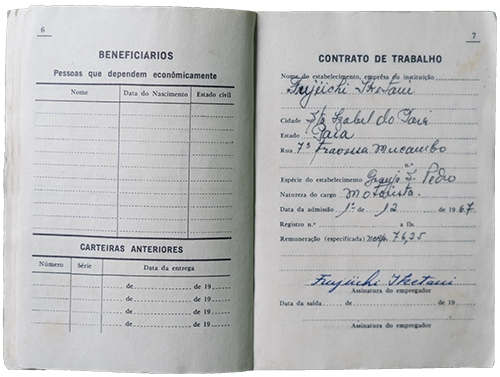 6
BENEFICIÁRIOS
Pessoas que dependem econômicamente
Nome Data do Nascimento Estado civil
CARTEIRAS ANTERIORES
Número Série Data da entrega
de de 19
de de 19
de de 19
de de 19
7
CONTRATO DE TRABALHO
Nome do estabelecimento, emprêsa ou instituição
Frujiichi Iketani
Cidade Sta Izabel do Pará
Estado Pará
Rua 7ª Travessa Mucambo
n.º
Espécie do estabelecimento Granja S. Pedro
Natureza do cargo Motorista
Data da admissão 1º de 12 de 1967
Registro n.º a fls.
Remuneração (especificada) 76,25
Frujiichi Iketani
Assinatura do empregador
Data da saída de de 19
Assinatura do empregador